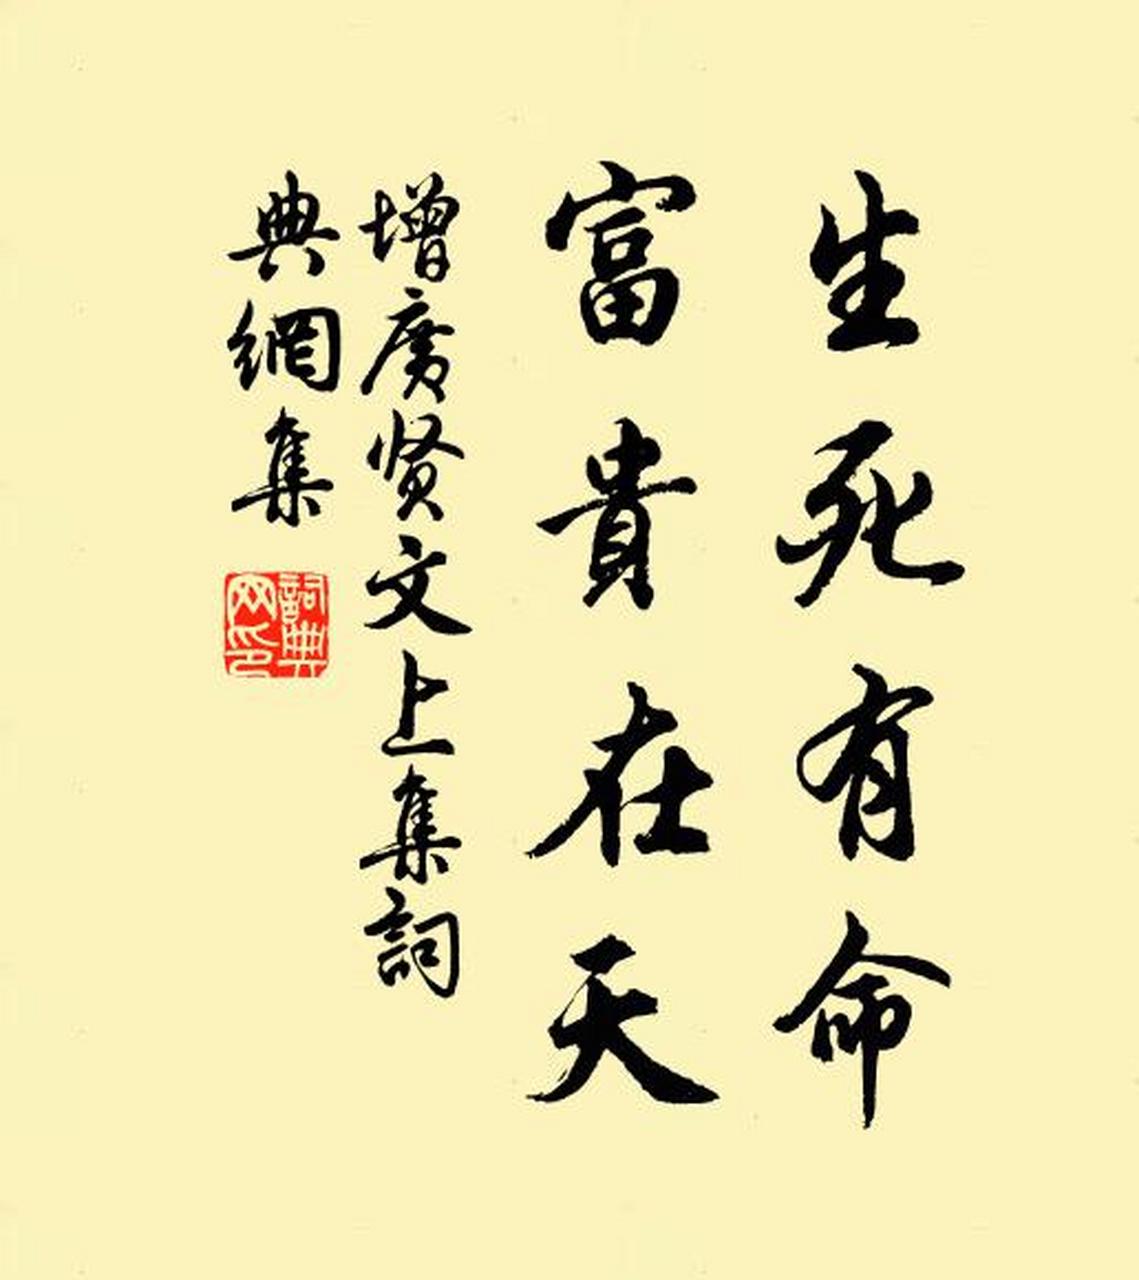 生死有命
富貴在天
增廣贤文上集詞
典網集
詞典
网印